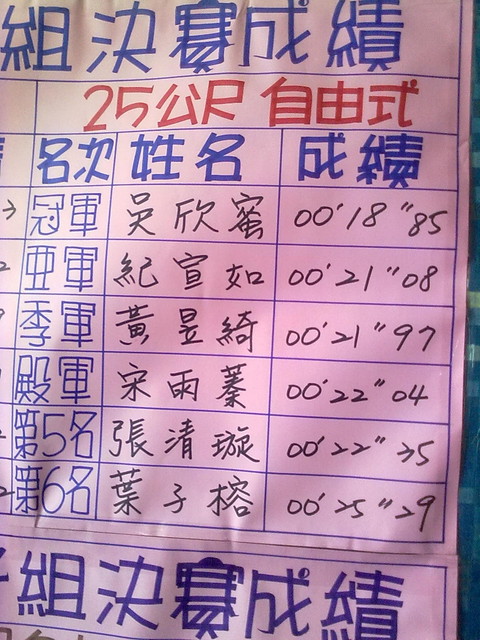 組決賽成績
25公尺 自由式
名次 姓名 成績
冠軍 吳欣蜜 00'18"85
亞軍 紀宣如 00'21"08
季軍 黃昱綺 00'21"97
殿軍 宋雨蓁 00'22"04
第5名 張清璇 00'22"25
第6名 葉子榕 00'25"29
子組決賽成績